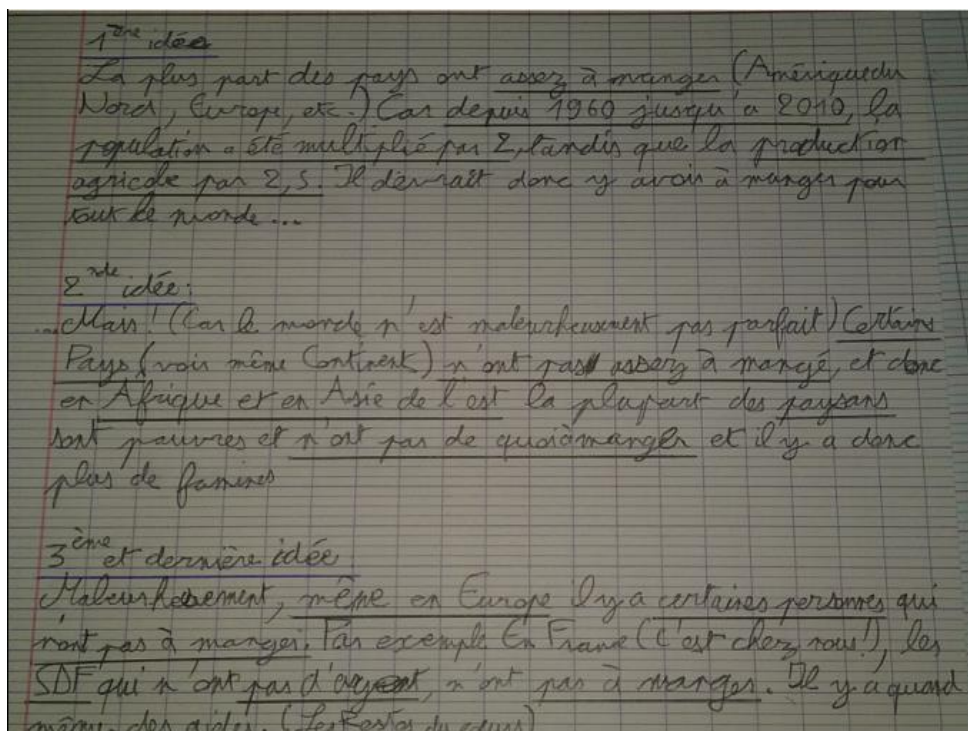 1ère idée
La plus part des pays ont assez à manger (Amérique du
Nord, Europe, etc.) Car depuis 1960 jusqu'a 2010, la
population a été multiplié par 2, tandis que la production
agricole par 2,5. Il devrait donc y avoir à manger pour
tout le monde...
2nde idée:
...Mais! (Car le monde n'est maleurheusement pas parfait) Certains
Pays (voir même Continent) n'ont pas assez à mangé, et donc
en Afrique et en Asie de l'est la plupart des paysans
sont pauvres et n'ont pas de quoi à manger et il y a donc
plus de famines
3ème et dernière idée
Maleurheusement, même en Europe il y a certaines personnes qui
n'ont pas à manger. Par exemple En France (C'est chez nous!), les
SDF qui n'ont pas d'argent, n'ont pas à manger. Il y a quand
même des aides. (Les Restos du cœurs)